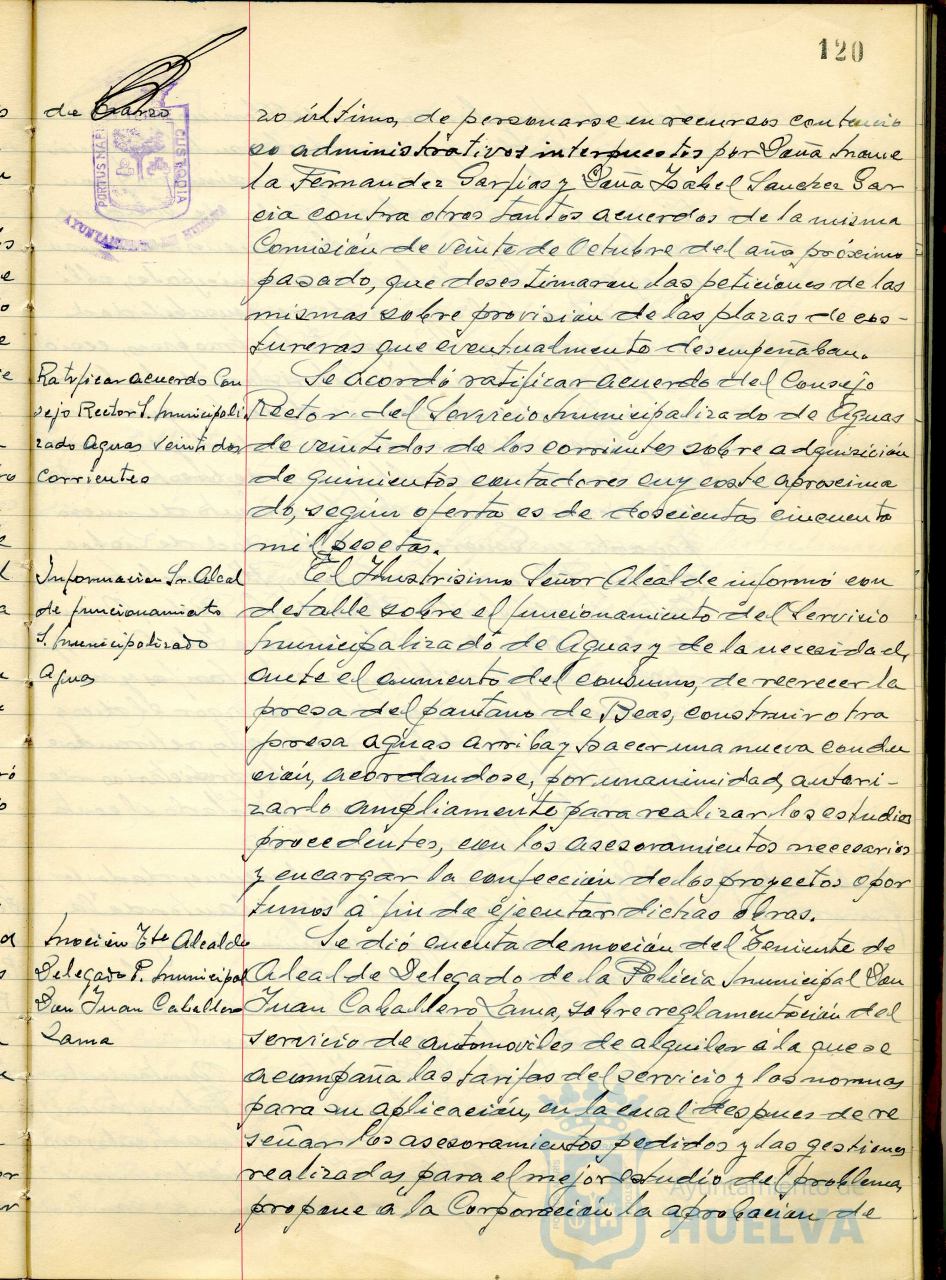 120
de Marzo
PORTUS MARIS CUSTODIA
AYUNTAMIENTO DE HUELVA
zo último, de personarse en recursos contencio
so administrativos interpuestos por Doña Manue
la Fernandez Garfias y Doña Isabel Sanchez Gar
cia contra otros tantos acuerdos de la misma
Comisión de veinte de Octubre del año próximo
pasado, que desestimaron las peticiones de las
mismas sobre provisión de las plazas de cos-
tureras que eventualmente desempeñaban.
Ratificar acuerdo Con
sejo Rector S. Municipali
zado Aguas veintidos
corrientes
Se acordó ratificar acuerdo del Consejo
Rector del Servicio Municipalizado de Aguas
de veintidos de los corrientes sobre adquisición
de quinientos contadores cuy coste aproxima
do, según oferta es de doscientas cincuenta
mil pesetas.
Informacion Sr. Alcal
de funcionamiento
S. Municipalizado
Aguas
El Ilustrisimo Señor Alcalde informó con
detalle sobre el funcionamiento del Servicio
Municipalizado de Aguas y de la necesidad,
ante el aumento del consumo, de recrecer la
presa del pantano de Beas, construir otra
presa aguas arriba y hacer una nueva condu
ción, acordandose, por unanimidad, autori-
zarlo ampliamente para realizar los estudios
procedentes, con los asesoramientos necesarios
y encargar la confección de los proyectos opor
tunos á fin de ejecutar dichas obras.
Moción Tte Alcalde
Delegado P. Municipal
Don Juan Caballero
Lama
Se dió cuenta de moción del Teniente de
Alcalde Delegado de la Policia Municipal Don
Juan Caballero Lama, sobre reglamentación del
servicio de automoviles de alquiler á la que se
acompaña las tarifas del servicio y las normas
para su aplicación, en la cual despues de re
señar los asesoramientos pedidos y las gestiones
realizadas para el mejor estudio del problema,
propone á la Corporación la aprobación de
Ayuntamiento de
HUELVA